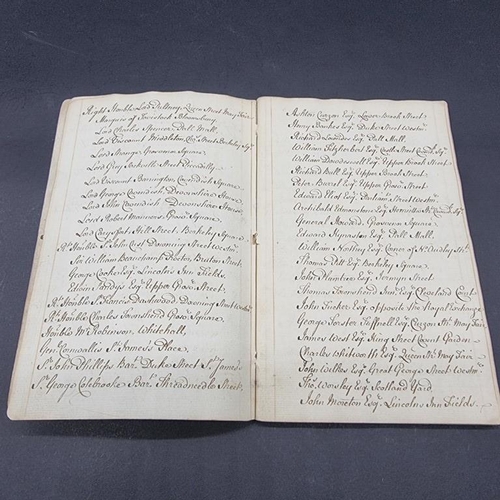 Right Honble Lord Pultney, Queen Street May Fair
Marquess of Tavestock Bloomsbury
Lord Charles Spencer, Pall Mall
Lord Viscount Middleton, Street Berkeley Sqr
Lord Strange Grosvenor Square
Lord Grey Sackville Street Piccadilly
Lord Viscount Barrington Cavendish Square
Lord George Cavendish, Devonshire House
Lord John Cavendish Devonshire House
Lord Robert Manners Grosr Square
Lord Carysfort Hill Street Berkeley Square
Rt Honble Sr John Downing Street Westmr
Sir William Beauchamp Proctor, Bruton Street
George Cooke Esqr Lincolns Inn Fields
Edwin Sandys Esqr Upper Grosr Street
Rt Honble Sr Francis Dashwood Downing Street Westmr
Rt Honble Charles Townshend Grosr Square
Honble Mr Robinson, Whitehall
Genl Cornwallis St James's Place
Sr John Phillipps Bart Duke Street St James's
Sr George Colebrooke Bart Threadneedle Street
Ashton Curzon Esqr Lower Brook Street
Henry Bankes Esqr Duke Street Westmr
Richard Esqr Pall Mall
William Fitzherbert Esqr Castle Street Sqr
William Dowdeswell Esqr Upper Brook Street
Richard Hull Esqr Upper Brook Street
Peter Burrel Esqr Upper Grosr Street
Edward Eliot Esqr Street Westmr
Archibald Edmonstone Esqr Sqr
General Howard, Grosvenor Square
Edward Kynaston Pall Mall
William Esqr Corner of No Audley Strt
Thomas Pitt Esqr Berkeley Square
John Plumtree Esqr Jermyn Street
Thomas Townshend Junr Esqr Cleveland Court
John Tucker Esqr opposite the Royal Exchange
George Forster Tuffnell Esqr Curzon Strt May Fair
James West Esqr King Street Covent Garden
Charles Whitworth Esqr Queen Strt May Fair
John Wilkes Esqr Great George Street Westmr
Thos Worsley Esqr Scotland Yard
John Moreton Esqr Lincolns Inn Fields